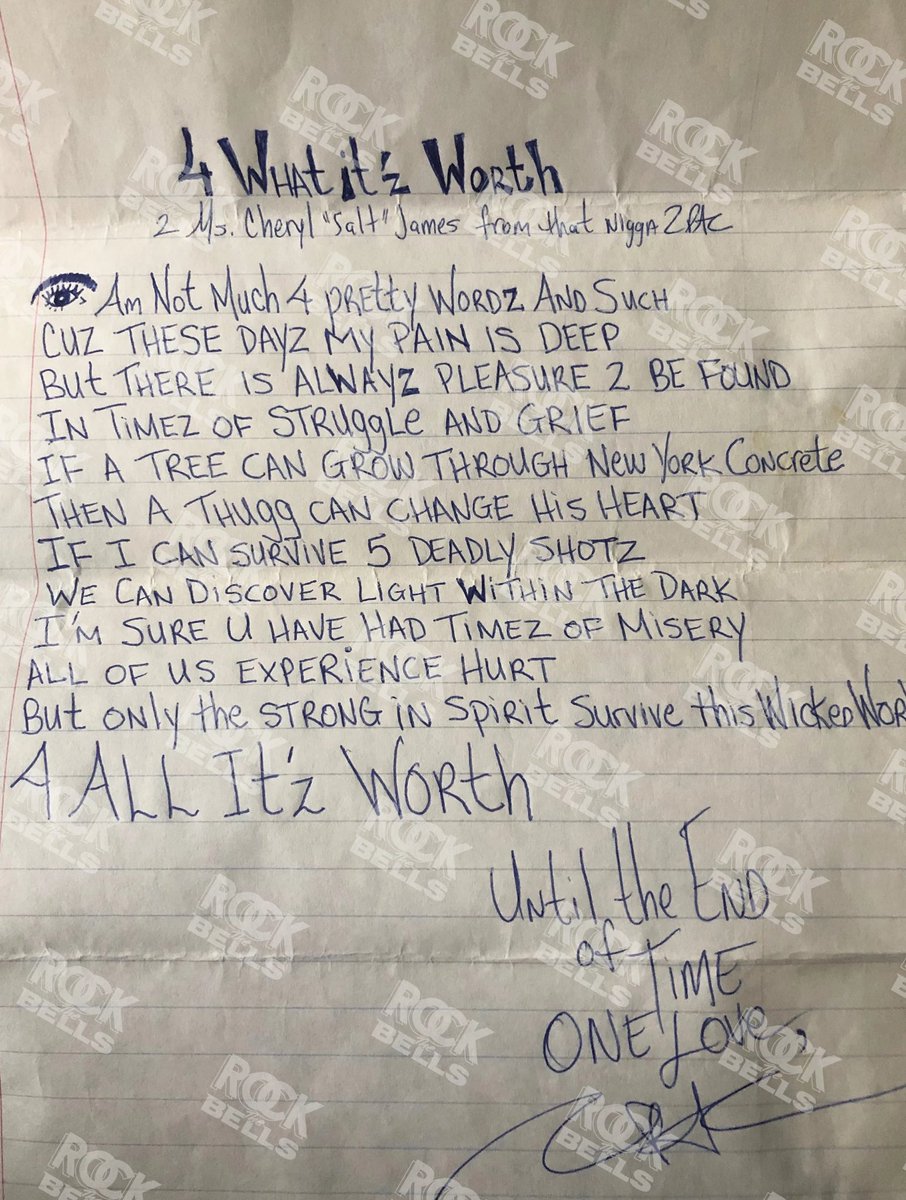 4 What it'z Worth
2 Ms. Cheryl "Salt" James from that Nigga 2PAC
Am Not Much 4 PRETTY WORDZ AND SUCH
CUZ THESE DAYZ MY PAIN IS DEEP
But THERE IS ALWAYZ PLEASURE 2 BE FOUND
IN TIMEZ OF STRUGGLE AND GRIEF
IF A TREE CAN GROW THROUGH NEW YORK CONCRETE
THEN A THUGG CAN CHANGE HIS HEART
IF I CAN SURVIVE 5 DEADLY SHOTZ
WE CAN DISCOVER LIGHT WITHIN THE DARK
I'M SURE U HAVE HAD TIMEZ OF MISERY
ALL OF US EXPERIENCE HURT
But only the STRONG IN SPIRIT Survive this Wicked Wor
4 ALL It'z Worth
Until the END
of TIME
ONE Love,
2PAC
ROCK THE BELLS